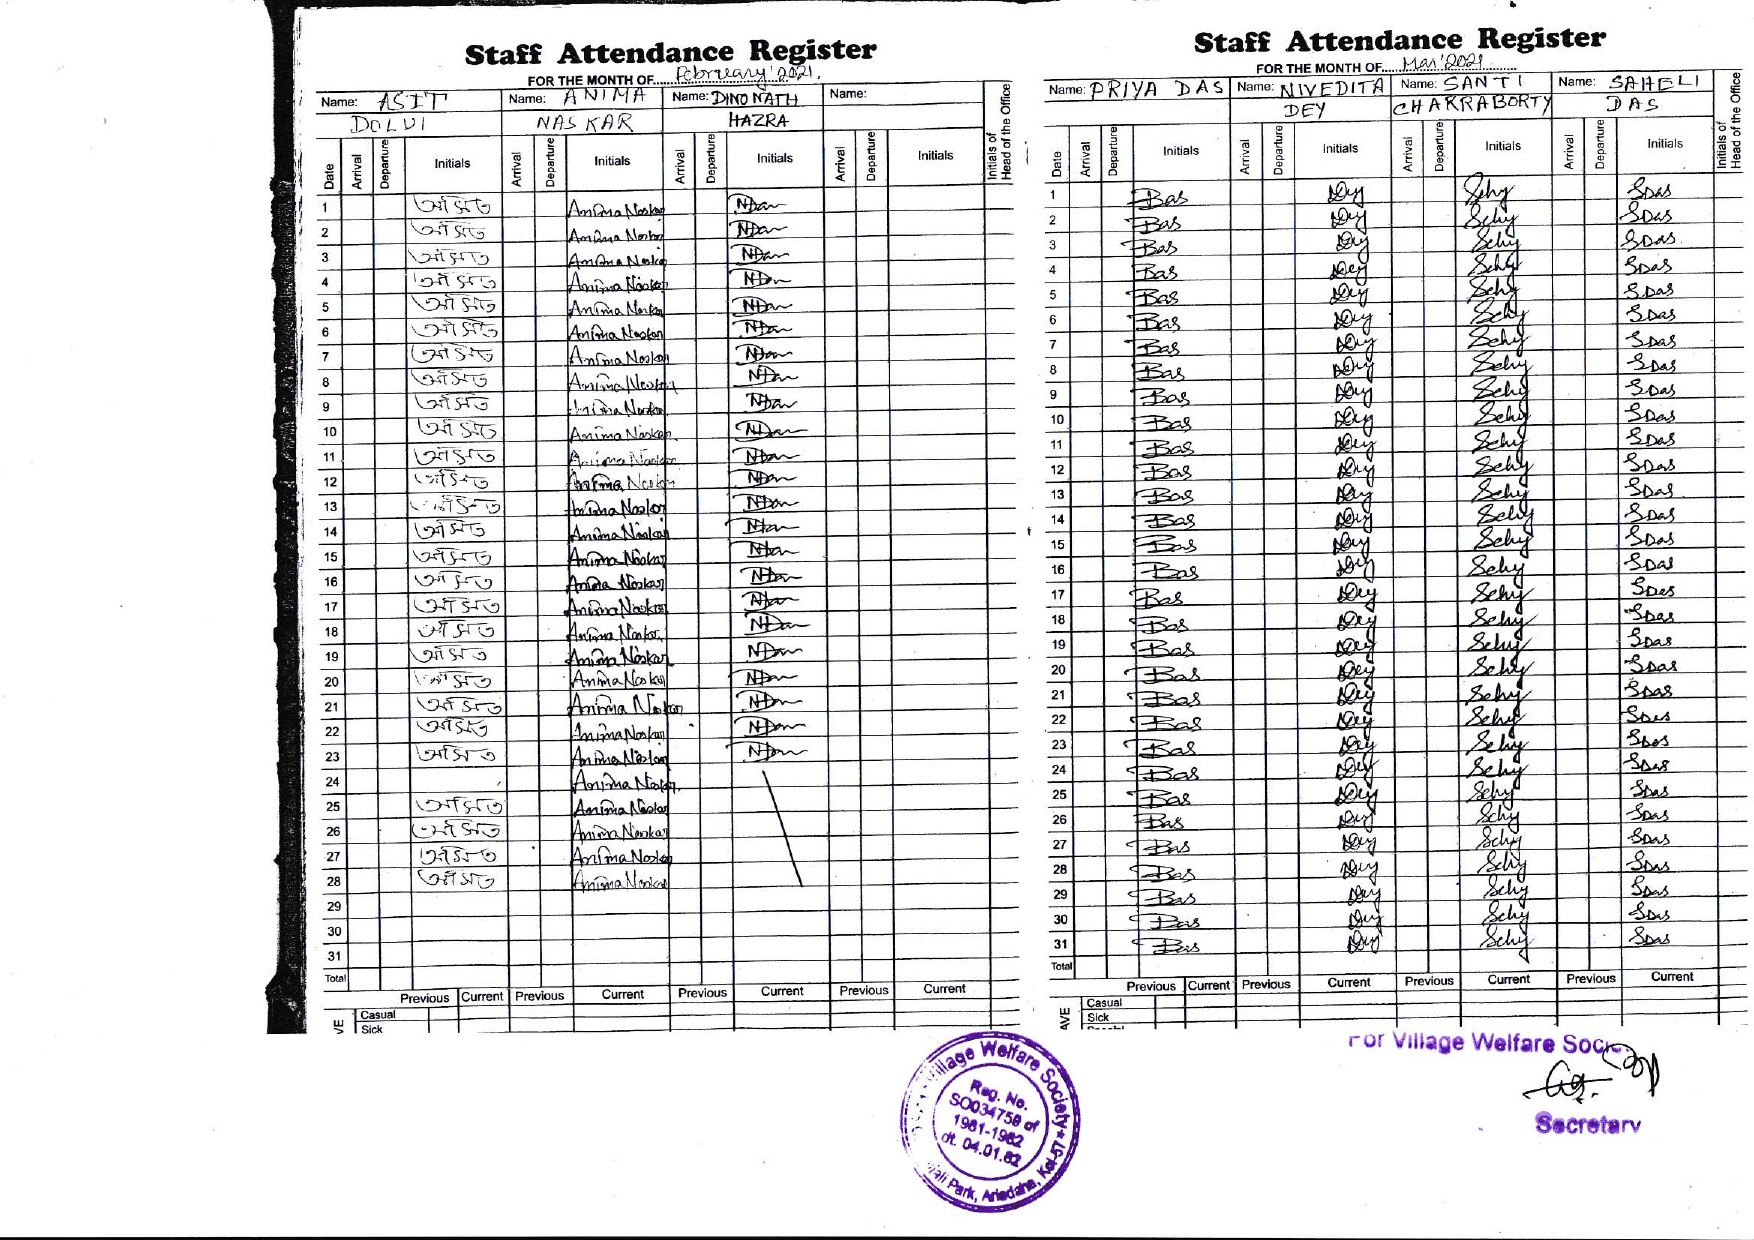 Staff Attendance Register
FOR THE MONTH OF February'2021.
Name: ASIT DOLUI
Name: ANIMA NASKAR
Name: DINONATH HAZRA
Name:
Initials of Head of the Office
Date Arrival Departure Initials Arrival Departure Initials Arrival Departure Initials Arrival Departure Initials
1 অসিত Anima Naskar NDan
2 অসিত Anima Naskar NDan
3 অসিত Anima Naskar NDan
4 অসিত Anima Naskar NDan
5 অসিত Anima Naskar NDan
6 অসিত Anima Naskar NDan
7 অসিত Anima Naskar NDan
8 অসিত Anima Naskar NDan
9 অসিত Anima Naskar NDan
10 অসিত Anima Naskar NDan
11 অসিত Anima Naskar NDan
12 অসিত Anima Naskar NDan
13 অসিত Anima Naskar NDan
14 অসিত Anima Naskar NDan
15 অসিত Anima Naskar NDan
16 অসিত Anima Naskar NDan
17 অসিত Anima Naskar NDan
18 অসিত Anima Naskar NDan
19 অসিত Anima Naskar NDan
20 অসিত Anima Naskar NDan
21 অসিত Anima Naskar NDan
22 অসিত Anima Naskar NDan
23 অসিত Anima Naskar NDan
24 Anima Naskar
25 অসিত Anima Naskar
26 অসিত Anima Naskar
27 অসিত Anima Naskar
28 অসিত Anima Naskar
29
30
31
Total
Previous Current Previous Current Previous Current Previous Current
Casual
Sick
Staff Attendance Register
FOR THE MONTH OF Mar'2021
Name: PRIYA DAS
Name: NIVEDITA DEY
Name: SANTI CHAKRABORTY
Name: SAHELI DAS
Initials of Head of the Office
Date Arrival Departure Initials Arrival Departure Initials Arrival Departure Initials Arrival Departure Initials
1 Das Dey Schy SDas
2 Das Dey Schy SDas
3 Das Dey Schy SDas
4 Das Dey Schy SDas
5 Das Dey Schy SDas
6 Das Dey Schy SDas
7 Das Dey Schy SDas
8 Das Dey Schy SDas
9 Das Dey Schy SDas
10 Das Dey Schy SDas
11 Das Dey Schy SDas
12 Das Dey Schy SDas
13 Das Dey Schy SDas
14 Das Dey Schy SDas
15 Das Dey Schy SDas
16 Das Dey Schy SDas
17 Das Dey Schy SDas
18 Das Dey Schy SDas
19 Das Dey Schy SDas
20 Das Dey Schy SDas
21 Das Dey Schy SDas
22 Das Dey Schy SDas
23 Das Dey Schy SDas
24 Das Dey Schy SDas
25 Das Dey Schy SDas
26 Das Dey Schy SDas
27 Das Dey Schy SDas
28 Das Dey Schy SDas
29 Das Dey Schy SDas
30 Das Dey Schy SDas
31 Das Dey Schy SDas
Total
Previous Current Previous Current Previous Current Previous Current
Casual
Sick
Village Welfare Society
Reg. No.
SO034758 of
1981-1982
dt. 04.01.82
Park, Ariadaha, Kol-57
For Village Welfare
Secretary